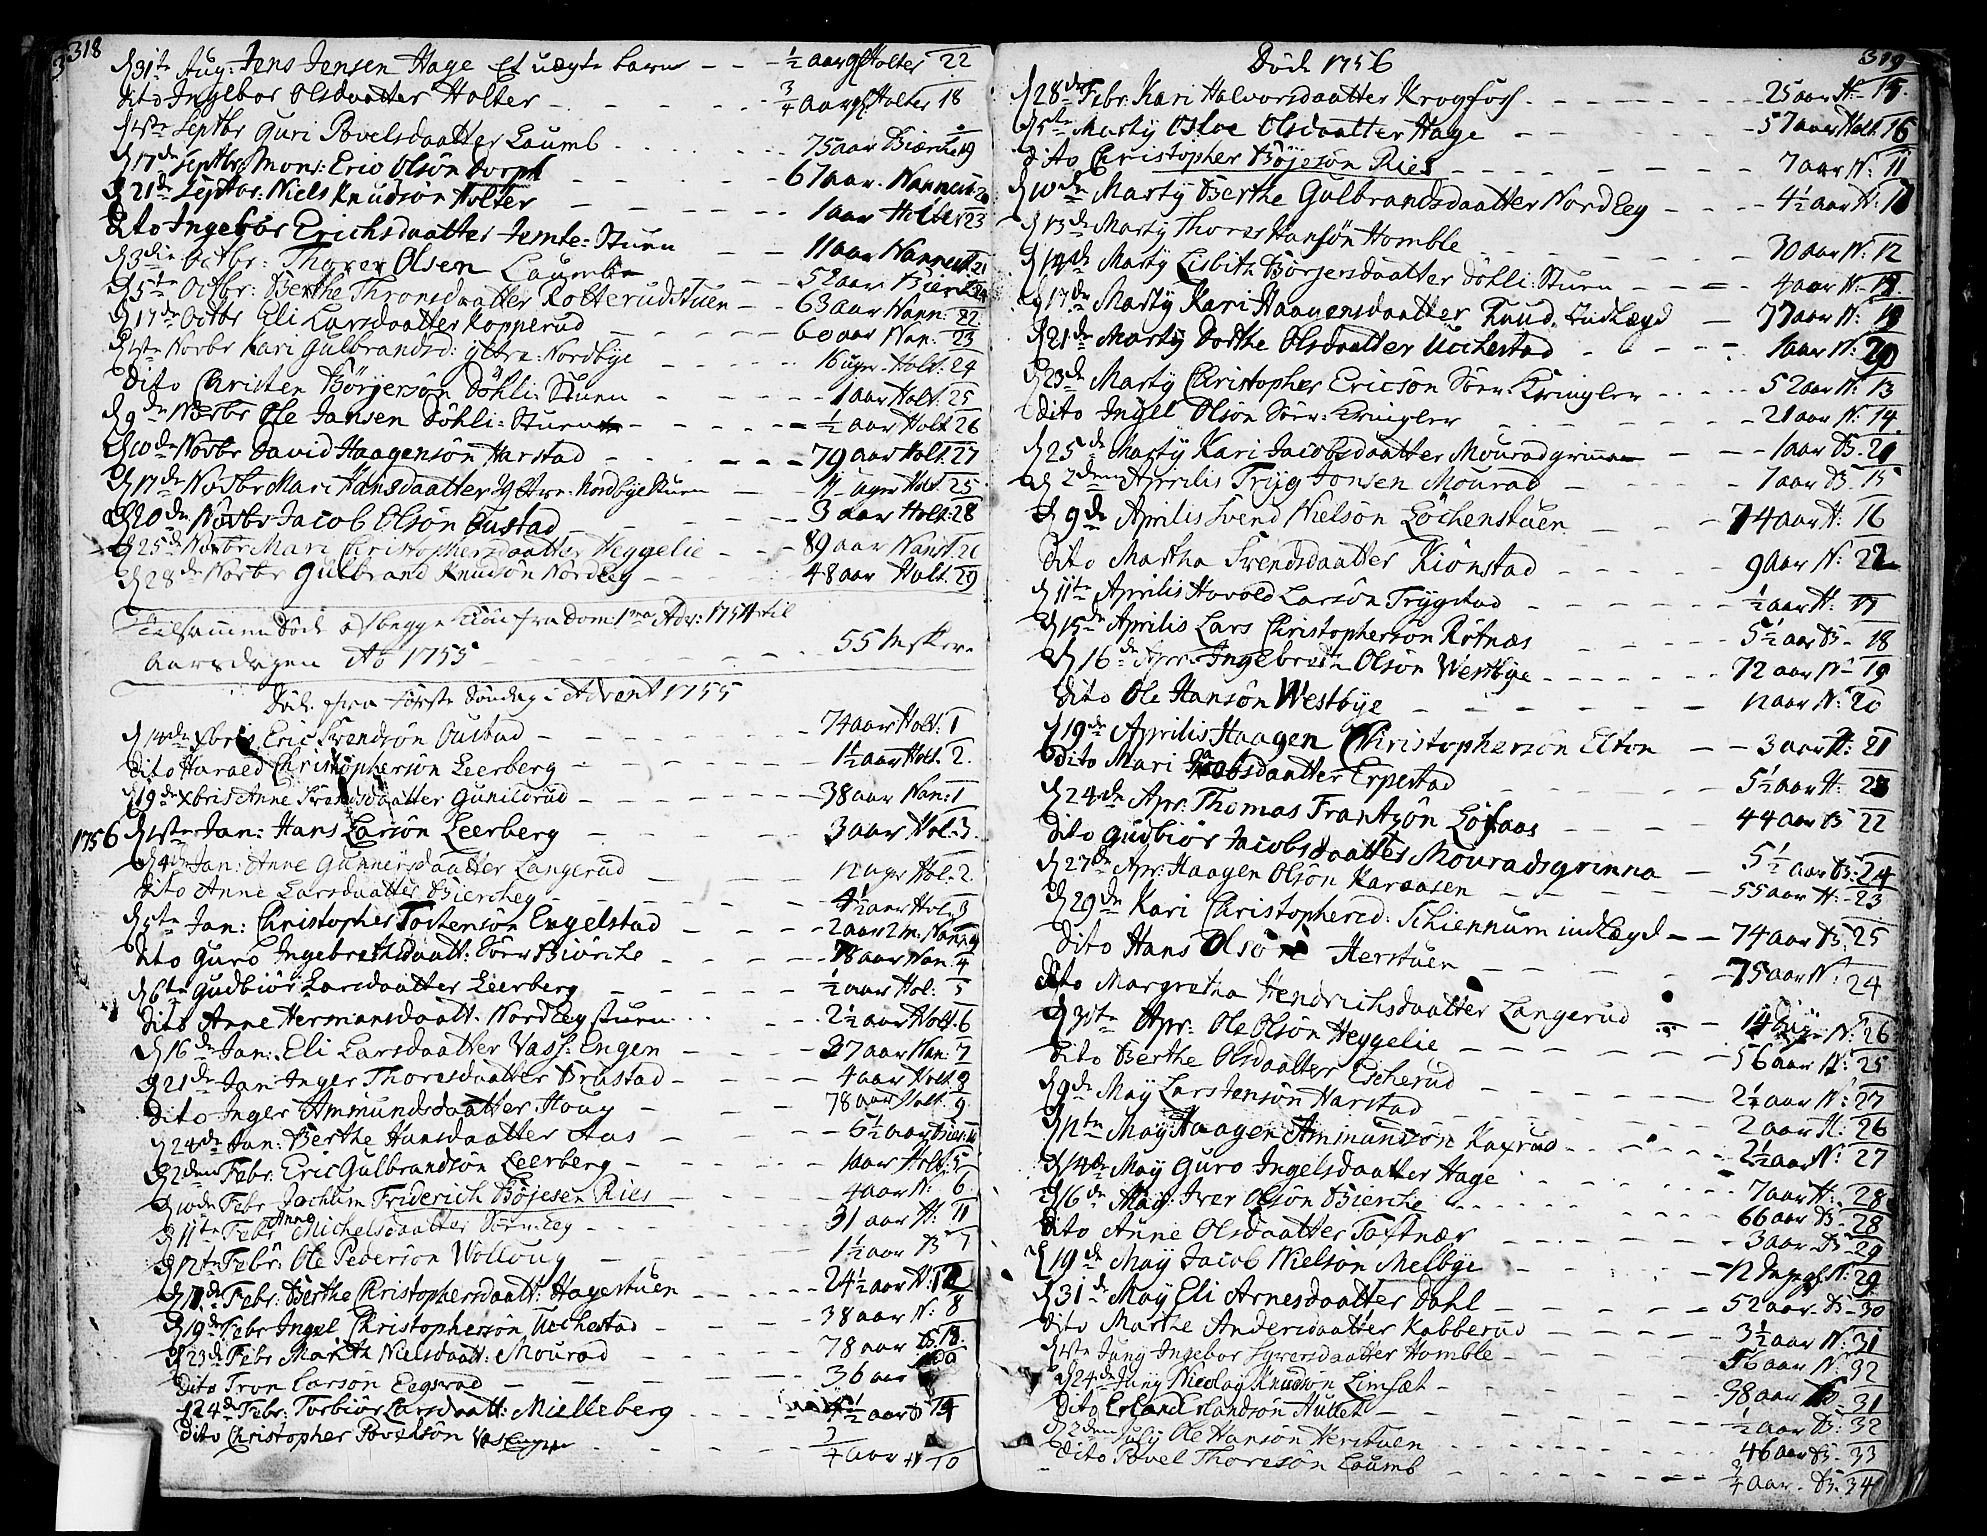 318
d 31te Aug: Jens Jensen Hage Et uægte barn - - - ½ aar gl Holter 22
dito Ingebor Olsdaatter Holter - - - ¾ aar gl. Holter 18
d 1ste Septbr Guri Povelsdaatter Laumb - - - 75 aar Bierche 19
d 17de Septbr Mons: Eric Olsön Dorph - - - 67 aar. Nannest. 20
d 21de Septbr: Niels Knudsön Holter - - - 1 aar Holter 23
dito Ingebor Erichsdaatter Jemte: Stuen - - - 11 aar Nannest. 21
d 3die Octbr: Thorer Olsen Laumb - - - 52 aar Bierche 24
d 5te Octbr: Berthe Thronsdaatter Rotterudstuen - - 63 aar Nann: 22
d 17de Octbr Eli Larsdaatter Kopperud - - - 60 aar Nan: 23
d 1ste Novbr Kari Gulbrandsd: Yttre: Nordbye - - - 16 uger Holt: 24
Dito Christen Börgersön Döhli: Stuen - - - 1 aar Holt. 25
d 9de Novbr Ole Jansen Döhli: Stuen - - - ½ aar Holt 26
d 10de Novbr David Haagensön Harstad - - - 79 aar Holt. 27
d 17de Novbr Mari Hansdaatter Yttre: Nordbyestuen - uger Hol. 25
d 20de Novbr Jacob Olsön Tustad - - - 3 aar Holt: 28
d 25de Novbr Mari Christophersdaatter Heggelie - - - 89 aar Nanst.
d 28de Novbr Gulbrand Knudsön Nordeeg - - - 48 aar Holt. 29
Tilsammen Döde af begge Kiön fra Dom: 1ma Adv: 1754 til
aarsdagen Ao 1755 - - - 55 Mskr.
Döde fra förste Söndag i Advent 1755
d Xbris Eric Svendsön Oustad - - - 74 aar Holt. 1
Dito Haraed Christophersön Leerberg - - - 1½ aar Holt. 2.
d 19de Xbris Anne Svendsdaatter Gunildrud - - - 38 aar Nan: 1
1756 d 1ste Jan: Hans Larsön Leerberg - - - 3 aar Hol. 3.
d 4de Jan: Anne Gunnersdaatter Langerud - - - 12 uger Hol: 2
Dito Anne Larsdaatter Bierchey - - - 4½ aar Hol: 3
d 5te Jan: Christopher Tostensön Engelstad - - - 2 aar 2 m. Nan: 4
dito Guro Ingebrethsdaatt: Sörr Biörche - - - 78 aar Nan. 4
d 6te Gudbiör Larsdaatter Leerberg - - - ½ aar Hol: 5
dito Anne Hermansdaatt. Nord Eeg stuen - - - 2½ aar Holt. 6
d 16de Jan: Eli Larsdaatter Vass: Engen - - - 37 aar Nan: 7
d 21de Jan Inger Thoresdaatter Brustad - - - 4 aar Holt. 8
dito Inger Ammundsdaatter Houg - - - 78 aar Holt. 9
d 24de Jan: Berthe Hansdaatter Aas - - - 6½ aar
d 2den Febr. Eric Gulbrandsön Leerberg - - - 1 aar Holt. 5
d 10de Febr Jochum Friderich Böjesen Ries - - - 4 aar N: 6
d 11te Febr Anne Michelsdaatter Sörn. Eeg - - - 31 aar H. 11
d 12te Febr. Ole Pedersön Wolloug - - - 1½ aar B 7
d Febr: Berthe Christophersdaatt: Hagestuen - - - 24½ aar H: 12
d 19de Febr Ingel Christophersön Uochestad - - - 38 aar N: 8
d 23de Febr Marith Nielsdaatt: Mourad - - - 78 aar B. 13.
dito Tron Larsön Eegsrad - - - 36 aar
d 24de Febr: Torbiör Larsdaatt: Mielleberg - - - ½ aar 14
dito Christopher Povelsön - - - ¾ aar N 10
Döde 1756
319
d 28de Febr. Kari Halvorsdaatter Krogfosf - - - 25 aar H. 15.
d 5te Marty Osloe Olsdaatter Hage - - - 57 aar Holt. 16
Dito Christopher Böjesön Ries - - - 7 aar N: 11
d 10de Marty Berthe Gulbrandsdaatter Nord Eeg - - - 4½ aar H. 17
d 13de Marty Thorer Hansön Homble - - - 30 aar N. 12
d 14de Marty Lisbeth Börgersdaatter Döhli: Stuen - - - 4 aar H. 18.
d 17de Marty Kari Haavensdaatter Tuud. Indlægd - 77 aar N: 19
d 21de Marty Dorthe Olsdaatter Uochestad - - - 1 aar N: 20
d 23de Marty Christopher Ericsön Sörr: Kringler - - - 52 aar N: 13
Dito Ingel Olsön Sörr: Kringler - - - 21 aar N. 14.
d 25de Marty Kari Jacobsdaatter Mouradgrinna - - - 1 aar B. 21
d 2den Aprilis Tryg Jonsen Mourad - - - 1 aar B. 15
d 9de Aprilis Svend Nielsön Löchenstuen - - - 74 aar H. 16
Dito Martha Svendsdaatter Kiönstad - - - 9 aar N. 22
d 11te Aprilis Harold Larsön Trygstad - - - ½ aar H. 17
d 15de Aprilis Lars Christophersön Rötnæs - - - 5½ aar B - 18
d 16de Apr. Ingebreth Olsön Westbye - - - 72 aar N - 19
Dito Ole Hansön Westbye - - - 12 aar N. 20
d 19de Aprilis Haagen Christophersön Elton - - 3 aar H: 21
dito Mari Jacobsdaatter Erpestad - - - 5½ aar H. 23
d 24de Apr: Thomas Frantzön Löfaas - - - 44 aar B 22
Dito Gudbiör Jacobsdaatter Mouradsgrinna - 5½ aar B: 24
d 27de Apr: Haagen Olsön Karaasen - - - 55 aar H. 23
d 29de Kari Christophersd: Schiennum indlægd - - 74 aar B. 25
Dito Hans Olsön Herstuen - - - 75 aar N. 24
Dito Margretha Hendrichsdaatter Langerud - - 14 N. 26
d 30te Apr: Ole Olsön Heggelie - - - 56 aar N. 25
Dito Berthe Olsdaatter Escherud - - - 2½ aar N. 27
d 9de May Lars Jensön Harstad - - - 2 aar H. 26
d 12te May Haagen Ammundsön Kaxrud - - - 2½ aar N. 27
d 14de May Guro Ingelsdaatter Hage - - - 7 aar H. 28
d 16de May: Iver Olsön Bierche - - - 66 aar B - 28
Dito Anne Olsdaatter Toftnær - - - 3 aar B - 29
d 19de May Jacob Nielsön Melbye - - - 12 N: 29
d 31de May Eli Arnesdaatter Dahl - - - 52 aar B - 30
dito Marthe Andersdaatter Kabberud - - - 3½ aar N: 31
d 1ste Juny Ingebor Syversdaatter Homble - - - 56 aar N. 32
d 24de Juny Nicolay Knudsön Limsæt - - - 98 aar 31
Dito Erland Erlandsön Hullet - - - ½ aar B: 32
d 2den July Ole Hansön Herstuen - - - 46 aar B - 33
Dito Povel Thoresön Laumb - - - ¾ aar. B. 34